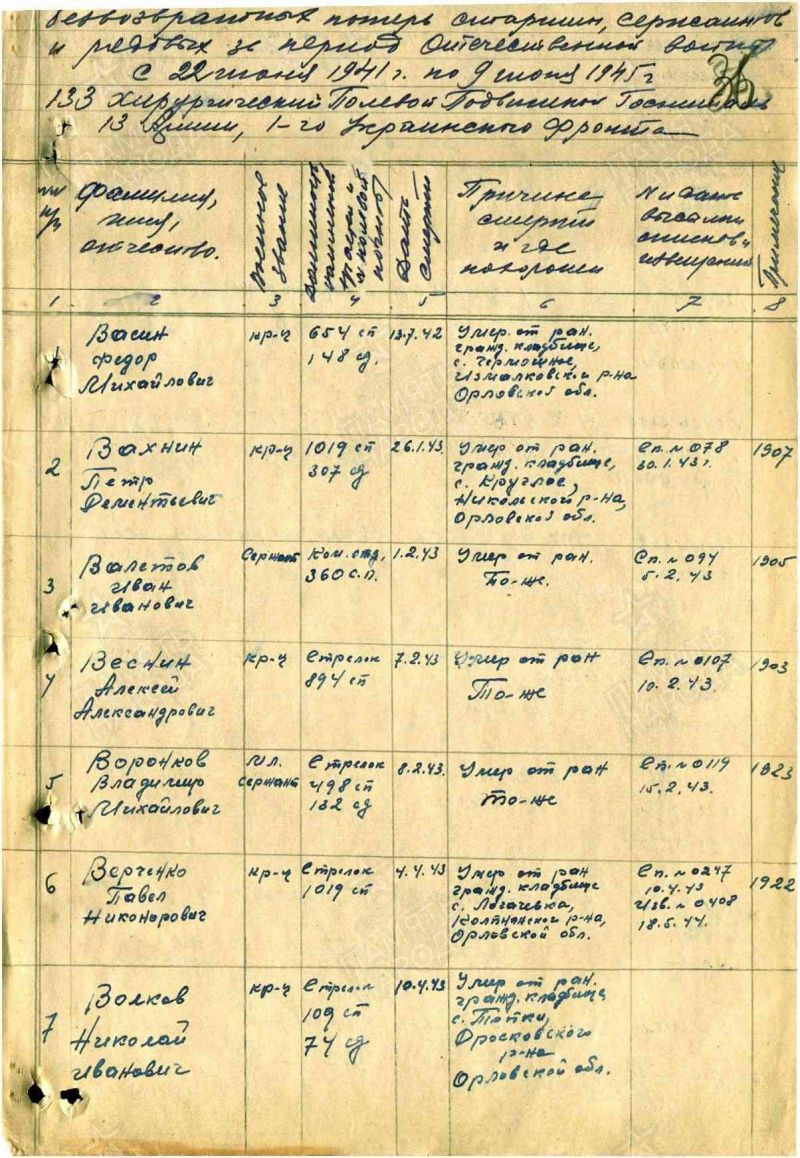 безвозвратных потерь старшин, сержантов
и рядовых за период Отечественной войны
с 22 июня 1941 г. по 9 июня 1945 г
36
133 Хирургический Полевой Подвижной Госпиталь
13 Армии, 1-го Украинского Фронта
№№ п/п
Фамилия,
имя,
отчество.
Военное
звание
Дата
смерти
Причина
смерти
и где
похоронен
№ и дата
высылки
списков и
извещений
Примечание
1 2 3 4 5 6 7 8
1
Васин
Федор
Михайлович
кр-ц
654 сп
148 сд.
13.7.42
Умер от ран.
гражд. кладбище,
с. Чермошное,
Измалковский р-на
Орловской обл.
2
Вахнин
Петр
Дементьевич
кр-ц
1019 сп
307 сд
26.1.43.
Умер от ран.
гражд. кладбище,
с. Круглое,
Никольской р-на,
Орловской обл.
Сп. № 078
30.1.43 г.
1907
3
Валетов
Иван
Иванович
Сержант
Ком. отд.
360 с.п.
1.2.43
Умер от ран.
То-же.
Сп. № 094
5.2.43
1905
4
Веснин
Алексей
Александрович
кр-ц
Стрелок
894 сп
7.2.43
Умер от ран
То-же
Сп. № 0107
10.2.43.
1903
5
Воронков
Владимир
Михайлович
Мл.
сержант
Стрелок
498 сп
132 сд
8.2.43.
Умер от ран
то-же
Сп. № 0119
15.2.43.
1923
6
Верченко
Павел
Никонорович
кр-ц
Стрелок
1019 сп
4.4.43
Умер от ран
гражд. кладбище
с. Логачевка,
Колпнянского р-на,
Орловской обл.
Сп. № 0247
10.4.43
Изв. № 0408
18.5.44.
1922
7
Волков
Николай
Иванович
кр-ц
Стрелок
109 сп
74 сд
10.4.43
Умер от ран.
гражд. кладбище
с. Топки,
Дросковского
р-на
Орловской обл.